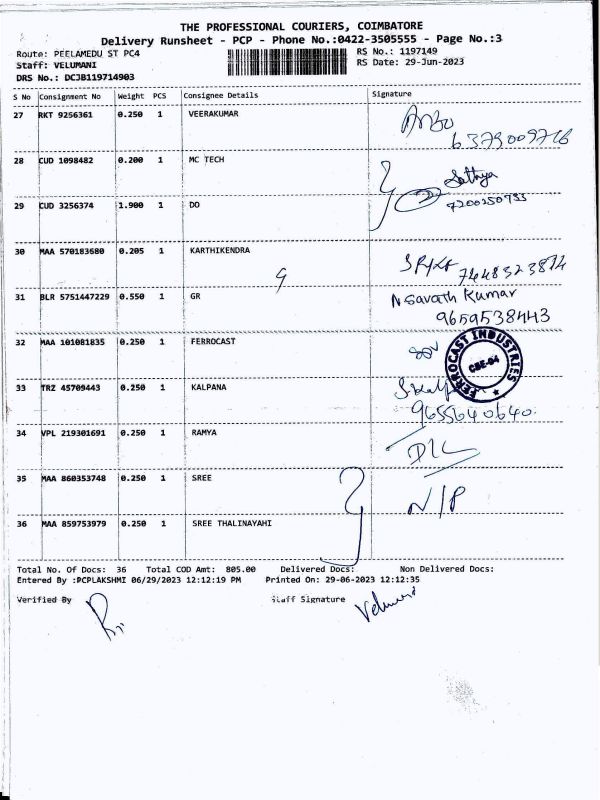 THE PROFESSIONAL COURIERS, COIMBATORE
Delivery Runsheet - PCP - Phone No.:0422-3505555 - Page No.:3
Route: PEELAMEDU ST PC4 RS No.: 1197149
Staff: VELUMANI RS Date: 29-Jun-2023
DRS No.: DCJB119714903
S No Consignment No Weight PCS Consignee Details Signature
27 RKT 9256361 0.250 1 VEERAKUMAR
6379009716
28 CUD 1098482 0.200 1 MC TECH Sathya
29 CUD 3256374 1.900 1 DO
30 MAA 570183680 0.205 1 KARTHIKENDRA
31 BLR 5751447229 0.550 1 GR N Savath Kumar
9659538443
32 MAA 101081835 0.250 1 FERROCAST
FERROCAST INDUSTRIES
CBE-04
33 TRZ 45709443 0.250 1 KALPANA
9655640640
34 VPL 219301691 0.250 1 RAMYA D/L
35 MAA 860353748 0.250 1 SREE N/P
36 MAA 859753979 0.250 1 SREE THALINAYAHI
Total No. Of Docs: 36 Total COD Amt: 805.00 Delivered Docs: Non Delivered Docs:
Entered By :PCPLAKSHMI 06/29/2023 12:12:19 PM Printed On: 29-06-2023 12:12:35
Verified By Staff Signature